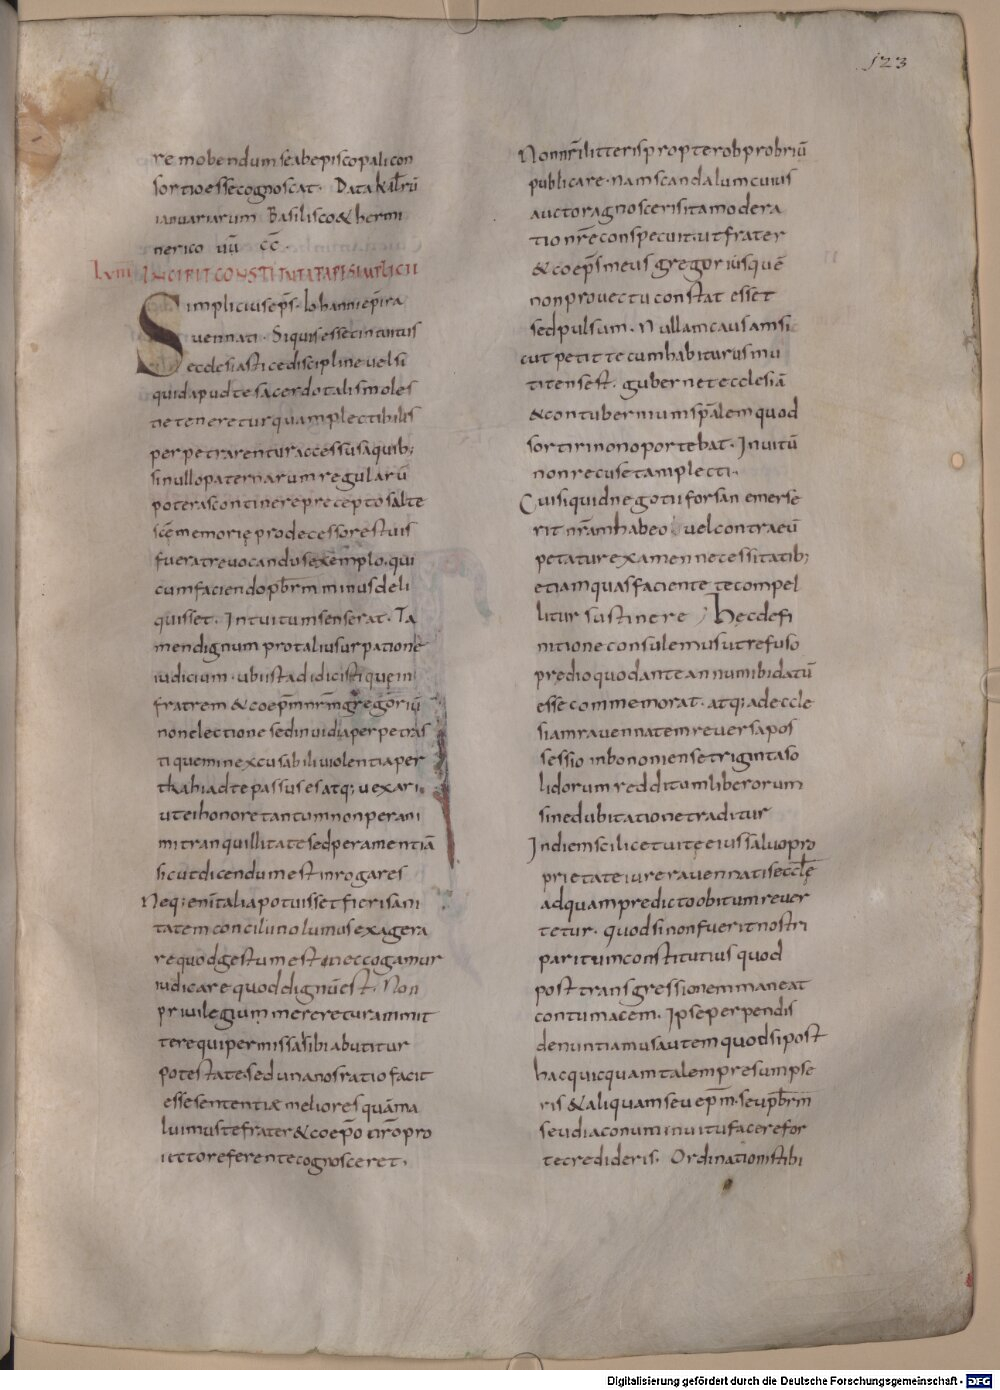 123
remobendum se ab episcopali con
sortio esse cognoscat. Data kal̄rū
ianuariarum Basilisco & hermi
nerico uū cc̄.
Lviiii INCIPIT CONSTITUTA PAPE SIMPLICII
Simplicius ep̄s. Iohanni ep̄ ra
uennati. Si quis esset intuitus
ecclesiastice discipline uel si
quid apud te sacerdotalis moles
tie teneretur quam plectibilis
perpetrarentur accessus a quib;
si nullo paternarum regularū
poteras continere precepto salte
sc̄e memorie prodecessores tuis
fuerat reuocandus exemplo. qui
cum faciendo pb̄rm minus deli
quisset. Intuitum senserat. Ta
men dignum pro tali usurpatione
iudicium. ubi ista didicisti quęin
fratrem & coep̄m nr̄m gregoriū
non electione sed inuidia perpetras
ti quem inexcusabili uiolentia per
trahi ad te passus es atq; uexari
ut ei honore tantum non per ani
mi tranquillitate sed per amentiā
sicut dicendum est inrogares
Neq; enī talia potuisset fieri sani
tatem concilii nolumus exagera
re quod gestum est ne cogamur
iudicare quod dignū est. Non
priuilegium meretur ammit
tere qui permissa sibi abutitur
potestate. sed unanos ratio facit
esse sententiæ meliores quā ma
luimus te frater & coep̄o nr̄o pro
iecto referente cognosceret.
Non nr̄i litteris propter obprobriū
publicare. nam scandalum cuius
auctor agnosceris ita modera
tio nr̄e conspecuit. ut frater
& coep̄s meus gregorius quē
non prouectu constat esset
sed pulsum. Nullam causam si
cut petit tecum habiturus mu
titensest. gubernet ecclesiā
& contubernium sp̄alem quod
sortiri non oportebat. Inuitū
non recuset amplecti.
Cui siquid negotii forsan emerse
rit nr̄am habeo uel contra eū
petatur examen necessitatib;
etiam quas faciente te compel
litur sustinere; Hęc defi
nitione consulemus ut refuso
predio quod ante annum ibi datū
esse commemorat. atq; ad eccle
siam rauennatem reuersa pos
sessio in bononiense triginta so
lidorum redditum liberorum
sine dubitatione traditur
In diem scilicet uitę eius saluo pro
prietate iurer rauennatis eccl̄ę
ad quam predicto obitum reuer
tetur. quod si non fuerit nostri
paritum constitutius quod
post transgressionem maneat
contumacem. Ipse perpendis
denuntiamus autem quod si post
hac quicquam talem presumpse
ris & aliquam seu ep̄m. seu pb̄rm
seu diaconum inuitu facere for
te credideris. Ordinationis tibi
Digitalisierung gefördert durch die Deutsche Forschungsgemeinschaft - DFG